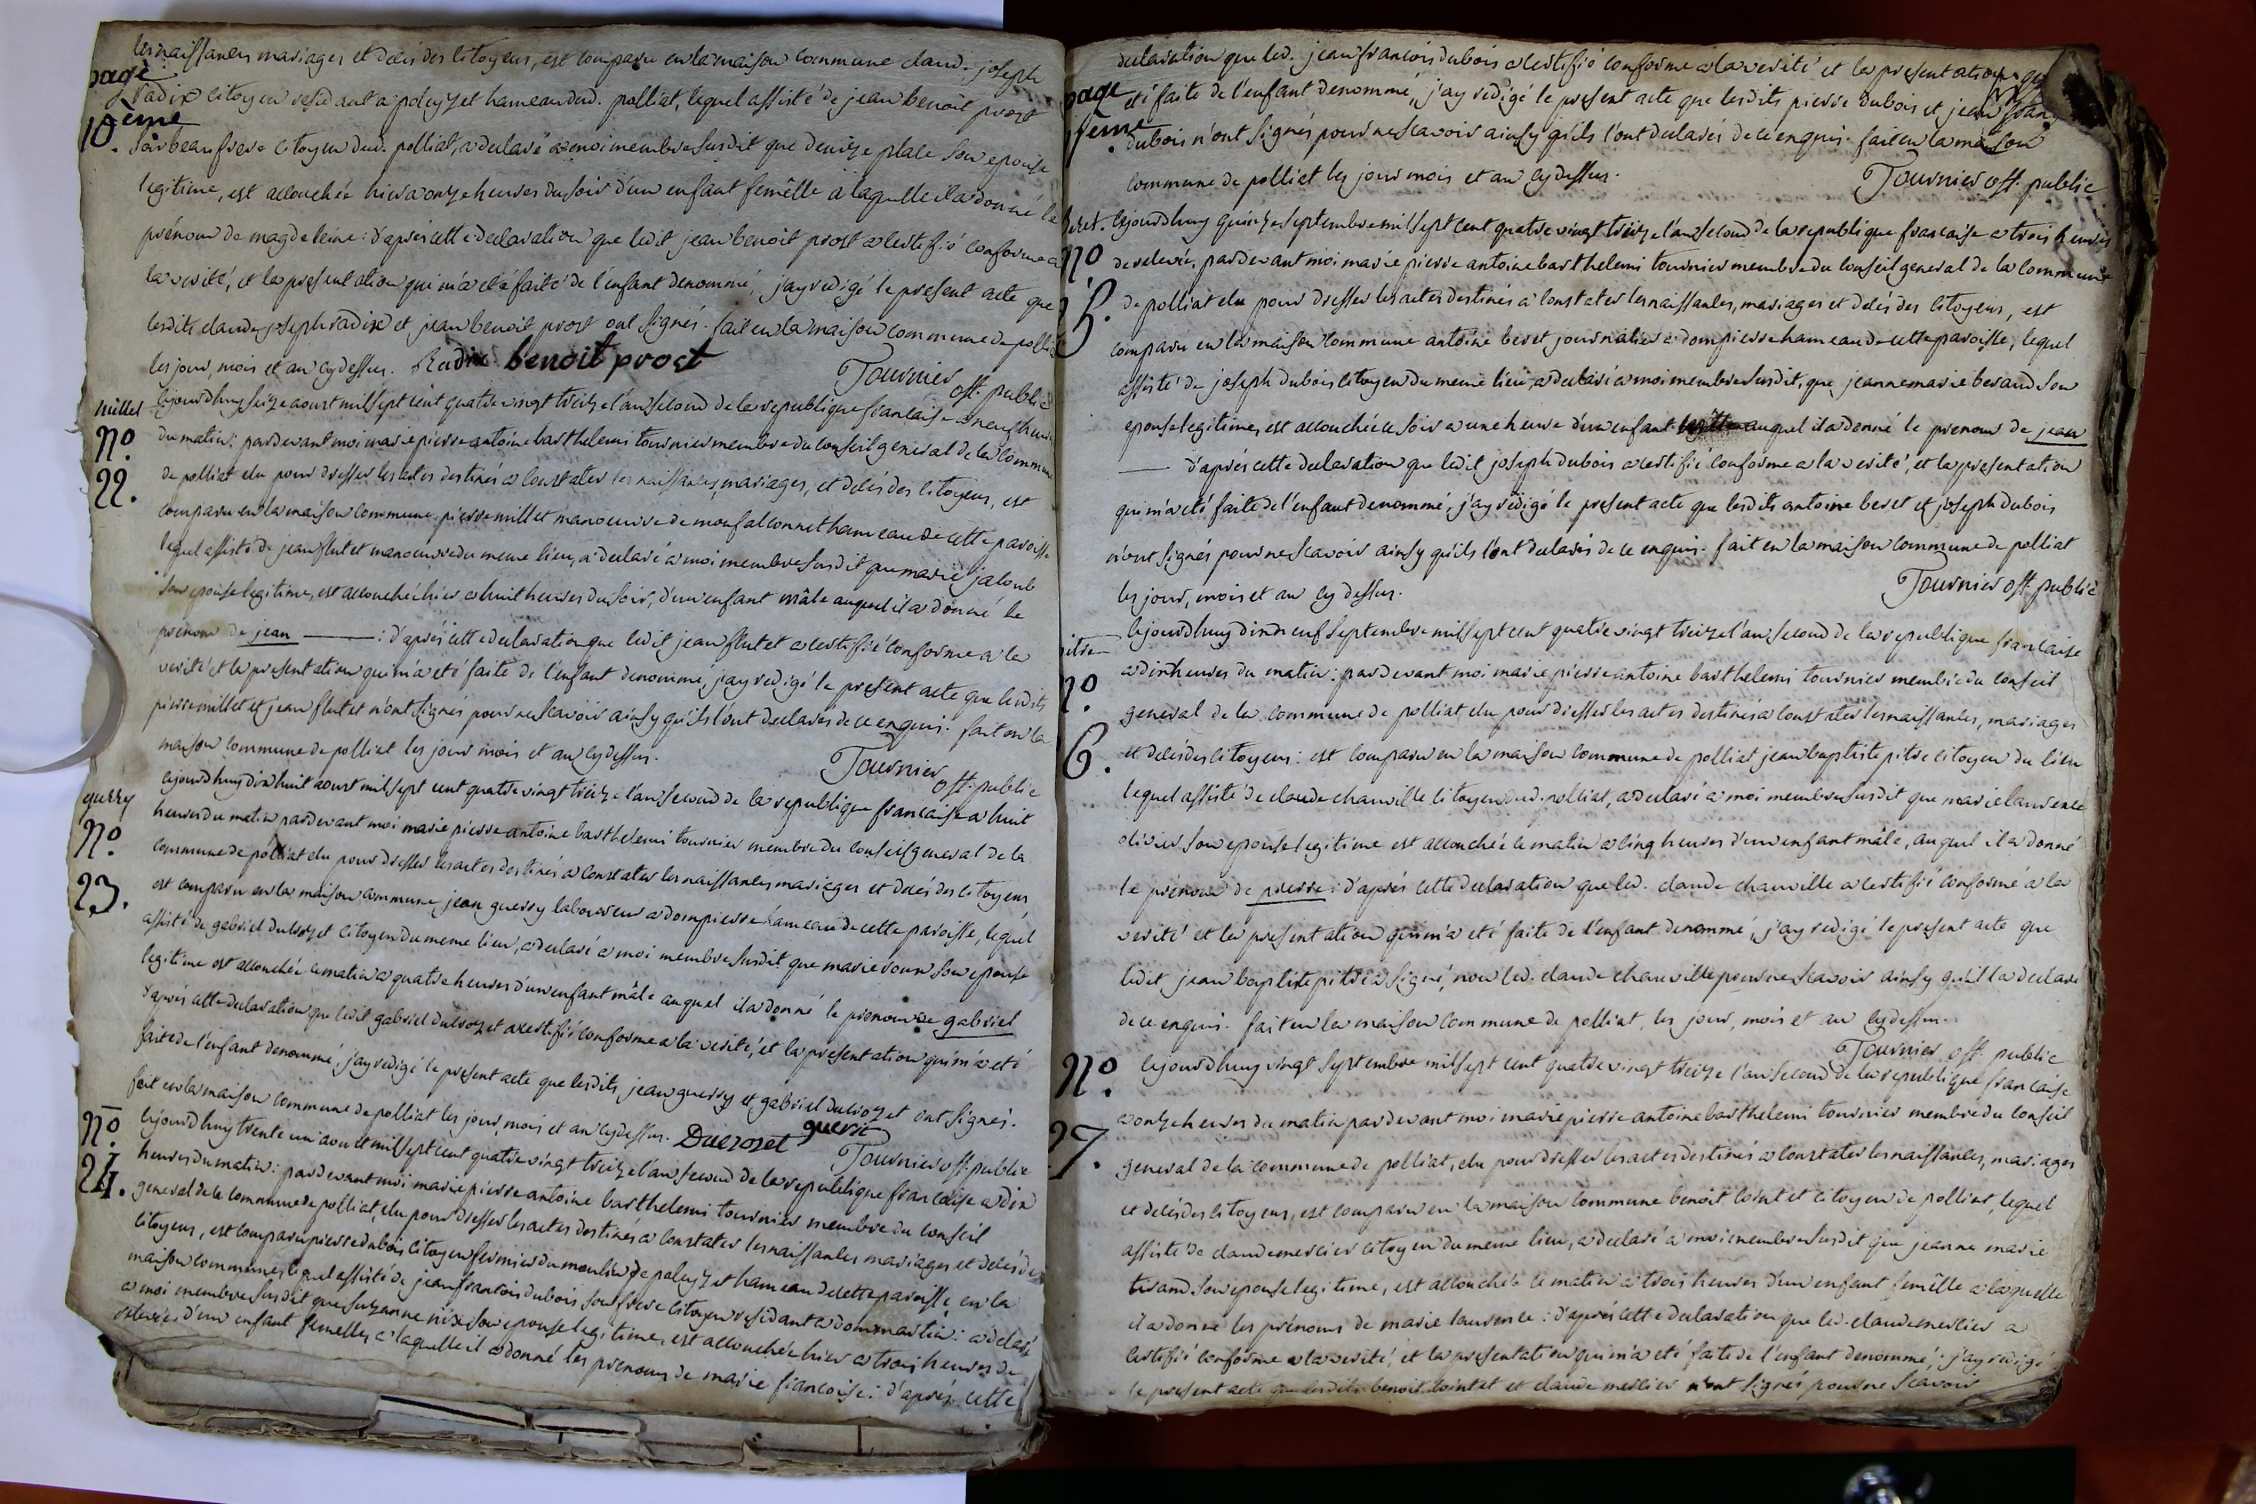 les naissances mariages et deces des citoyens, est comparu en la maison commune claude joseph
page
radix citoyen residant a poleyzet hameau dud. polliat, lequel assisté de jean benoit prost
10.eme
son beau frere citoyen dud. polliat, a declaré a moi membre susdit que denize place son epouse
legitime, est accouchée hier a onze heures du soir d'un enfant femêlle à laquelle il a donné le
prénom de magdeleine : d'aprés cette declaration que ledit jean benoit prost a certifié conforme a
la verité, et la presentation qui m'a eté faite de l'enfant denommé, j'ay redigé le present acte que
lesdits claude joseph radix et jean benoit prost ont signés. fait en la maison commune de polliat
les jour, mois et an cy dessus. Radix benoit prost
Tournier off. public
millet
N.o
22.
cejourd'huy seize aoust mil sept cent quatre vingt treize l'an second de la republique francaise a neuf heures
du matin : pardevant moi marie pierre antoine barthelemi tournier membre du conseil general de la commune
de polliat elu pour dresser les actes destinés a constater les naissances, mariages, et décés des citoyens, est
comparu en la maison commune pierre millet manoeuvre de monfalconnet hameau de cette paroisse
lequel assisté de jean flutet manoeuvre du meme lieu, a declaré a moi membre susdit que marie
son epouse legitime, est accouchée hier a huit heures du soir, d'un enfant mâle auquel il a donné le
prenom de jean ——— : d'aprés cette declaration que ledit jean flutet a certifié conforme a la
verité et la presentation qui m'a eté faite de l'enfant denommé, j'ay redigé le present acte que lesdits
pierre millet et jean flutet n'ont signés pour ne scavoir ainsy qu'ils l'ont declarés de ce enquis. fait en la
maison commune de polliat les jour mois et an cy dessus.
Tournier off. public
guerry
N.o
23.
cejourd'huy dix huit aoust mil sept cent quatre vingt treize l'an second de la republique francaise a huit
heures du matin pardevant moi marie pierre antoine barthelemi tournier membre du conseil general de la
commune de polliat elu pour dresser les actes destinés a constater les naissances mariages et decés des citoyens,
est comparu en la maison commune, jean guerry laboureur a dompierre hameau de cette paroisse, lequel
assisté de gabriel ducrozet citoyen du meme lieu, a declaré a moi membre susdit que marie son epouse
legitime est accouchée ce matin a quatre heures d'un enfant mâle auquel il a donné le prenom de gabriel
d'aprés cette declaration que ledit gabriel ducrozet a certifié conforme a la verité, et la presentation qui m'a eté
faite de l'enfant denommé, j'ay redigé le present acte que lesdits jean guerry et gabriel ducrozet ont signés.
fait en la maison commune de polliat les jour, mois et an cy dessus. Ducrozet guerri
Tournier off. public
N.o
24.
cejourd'huy trente un aout mil sept cent quatre vingt treize l'an second de la republique francaise a dix
heures du matin : pardevant moi marie pierre antoine barthelemi tournier membre du conseil
general de la commune de polliat, elu pour dresser les actes destinés a constater les naissances mariages et decés des
citoyens, est comparu pierre dubois citoyen fermier du moulin de poleyzet hameau de cette paroisse en la
maison commune, lequel assisté de jean francois dubois son frere citoyen residant a dommartin : a declaré
a moi membre susdit que suzanne son epouse legitime, est accouchée hier a trois heures de
relevée, d'un enfant femelle, a laquelle il a donné les prenoms de marie francoise : d'aprés cette
declaration que led. jean francois dubois a certifié conforme a la verité et la presentation qui
page
eté faite de l'enfant denommé, j'ay redigé le present acte que lesdits pierre dubois et jean
eme
dubois n'ont signés pour ne scavoir ainsy qu'ils l'ont declarés de ce enquis. fait en la maison
commune de polliat les jour mois et an cy dessus.
Tournier off. public
beret.
N.o
5.
cejourd'huy quinze septembre mil sept cent quatre vingt treize l'an second de la republique francaise a trois heures
de relevée, pardevant moi marie pierre antoine barthelemi tournier membre du conseil general de la commune
de polliat elu pour dresser les actes destinés a constater les naissances, mariages et decés des citoyens, est
comparu en la maison commune antoine beret journalier a dompierre hameau de cette paroisse, lequel
assisté de joseph dubois citoyen du meme lieu, a declaré a moi membre susdit, que jeanne marie son
epouse legitime, est accouchée ce soir a une heure d'un enfant auquel il a donné le prenom de jean
—— d'aprés cette declaration que ledit joseph dubois a certifié conforme a la verité, et la presentation
qui m'a eté faite de l'enfant denommé, j'ay redigé le present acte que lesdits antoine beret et joseph dubois
n'ont signés pour ne scavoir ainsy qu'ils l'ont declarés de ce enquis. fait en la maison commune de polliat
les jour, mois et an cy dessus.
Tournier off. public
pitre
N.o
6.
cejourd'huy dix neuf septembre mil sept cent quatre vingt treize l'an second de la republique francaise
a dix heures du matin : pardevant moi marie pierre antoine barthelemi tournier membre du conseil
general de la commune de polliat, elu pour dresser les actes destinés a constater les naissances, mariages
et decés des citoyens : est comparu en la maison commune de polliat jean baptiste pitre citoyen du lieu
lequel assisté de claude chanville citoyen dud. polliat, a declaré a moi membre susdit que marie laurence
olivier son epouse legitime est accouchée ce matin a cinq heures d'un enfant mâle, auquel il a donné
le prénom de pierre : d'aprés cette declaration que led. claude chanville a certifié conforme a la
verité et la presentation qui m'a eté faite de l'enfant denommé, j'ay redigé le present acte que
ledit jean baptiste pitre a signé, non led. claude chanville pour ne scavoir ainsy qu'il l'a declaré
de ce enquis. fait en la maison commune de polliat, les jour, mois et an cy dessus.
Tournier off. public
N.o
27.
cejourd'huy vingt septembre mil sept cent quatre vingt treize l'an second de la republique francaise
a onze heures du matin pardevant moi marie pierre antoine barthelemi tournier membre du conseil
general de la commune de polliat, elu pour dresser les actes destinés a constater les naissances, mariages
et decés des citoyens, est comparu en la maison commune benoit cointet citoyen de polliat, lequel
assisté de claude mercier citoyen du meme lieu, a declaré a moi membre susdit que jeanne marie
son epouse legitime, est accouchée ce matin a trois heures d'un enfant femêlle a laquelle
il a donné les prénoms de marie laurence : d'aprés cette declaration que led. claude mercier a
certifié conforme a la verité, et la presentation qui m'a eté faite de l'enfant denommé, j'ay redigé
le present acte que lesdits benoit cointet et claude mercier n'ont signés pour ne scavoir